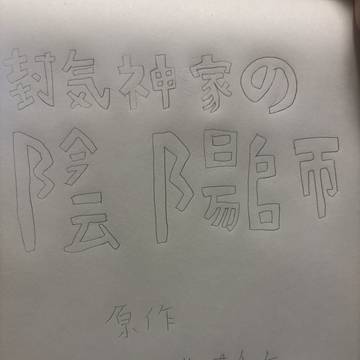 封気神家の
陰陽師
原作